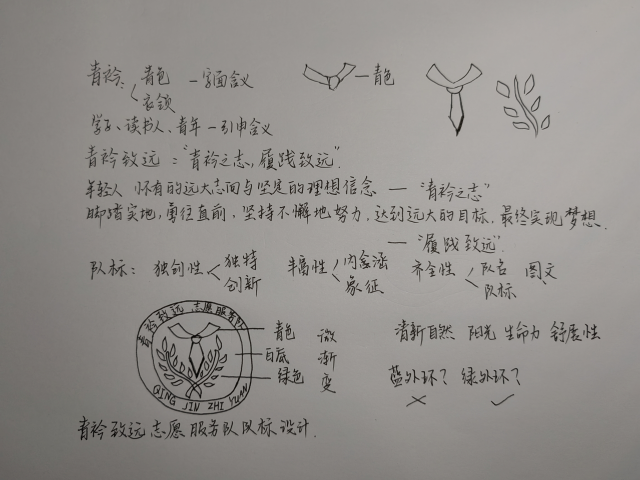 青衿: 青色 —字面含义
衣领
学子、读书人、青年—引申含义
—青色
青衿致远: "青衿之志,履践致远".
年轻人 怀有的远大志向与坚定的理想信念 — "青衿之志"
脚踏实地,勇往直前,坚持不懈地努力,达到远大的目标,最终实现梦想.
— "履践致远".
队标: 独创性 独特 创新 丰富性 内含涵 象征 齐全性 队名 队标 图文
青衿致远 志愿服务队
QING JIN ZHI YUAN
青色 微
白底 渐
绿色 变
清新自然 阳光 生命力 舒展性
蓝外环? 绿外环?
× ✓
青衿致远志愿服务队队标设计.